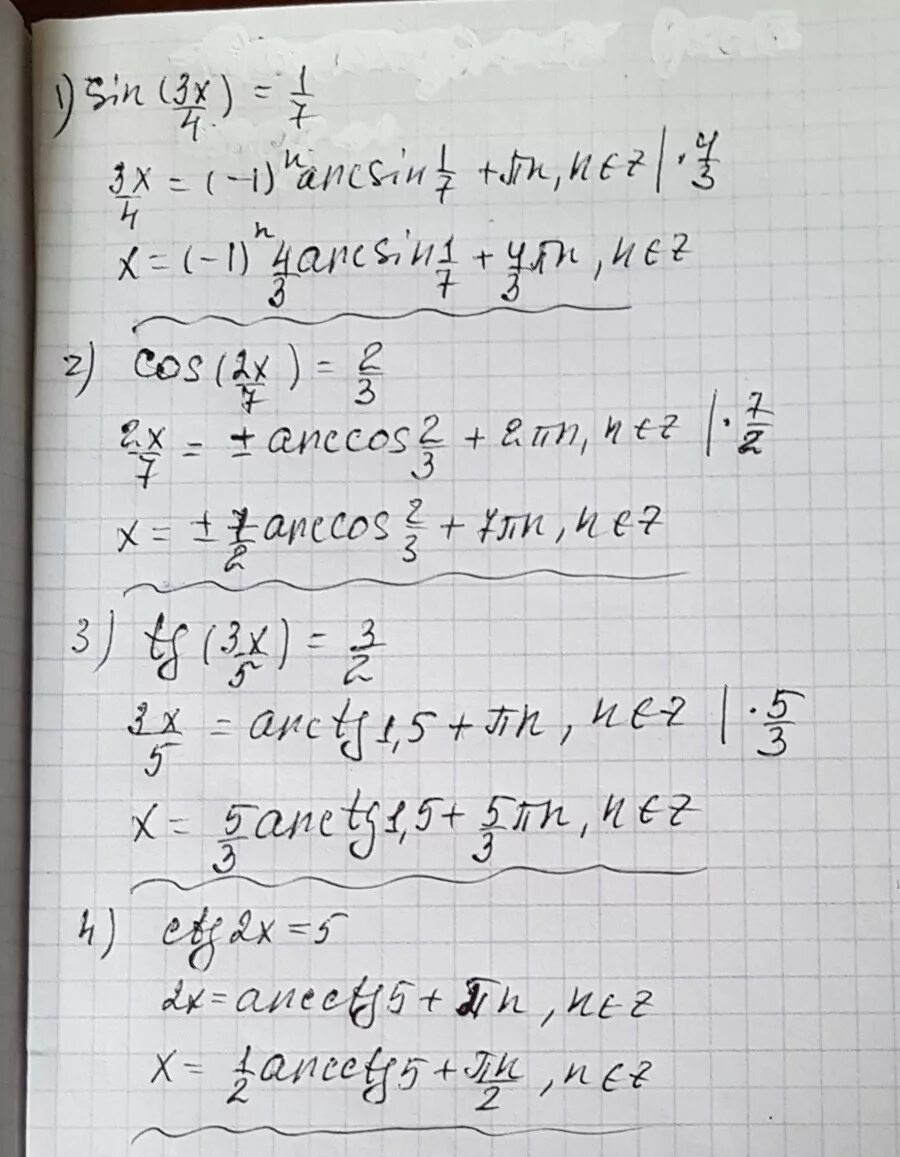 1) sin (3x/4) = 1/7
3x/4 = (-1)^n arcsin 1/7 + πn, n ∈ Z | · 4/3
x = (-1)^n 4/3 arcsin 1/7 + 4/3 πn, n ∈ Z
2) cos (2x/7) = 2/3
2x/7 = ± arccos 2/3 + 2πn, n ∈ Z | · 7/2
x = ± 7/2 arccos 2/3 + 7πn, n ∈ Z
3) tg (3x/5) = 3/2
3x/5 = arctg 1,5 + πn, n ∈ Z | · 5/3
x = 5/3 arctg 1,5 + 5/3 πn, n ∈ Z
4) ctg 2x = 5
2x = arcctg 5 + πn, n ∈ Z
x = 1/2 arcctg 5 + πn/2, n ∈ Z